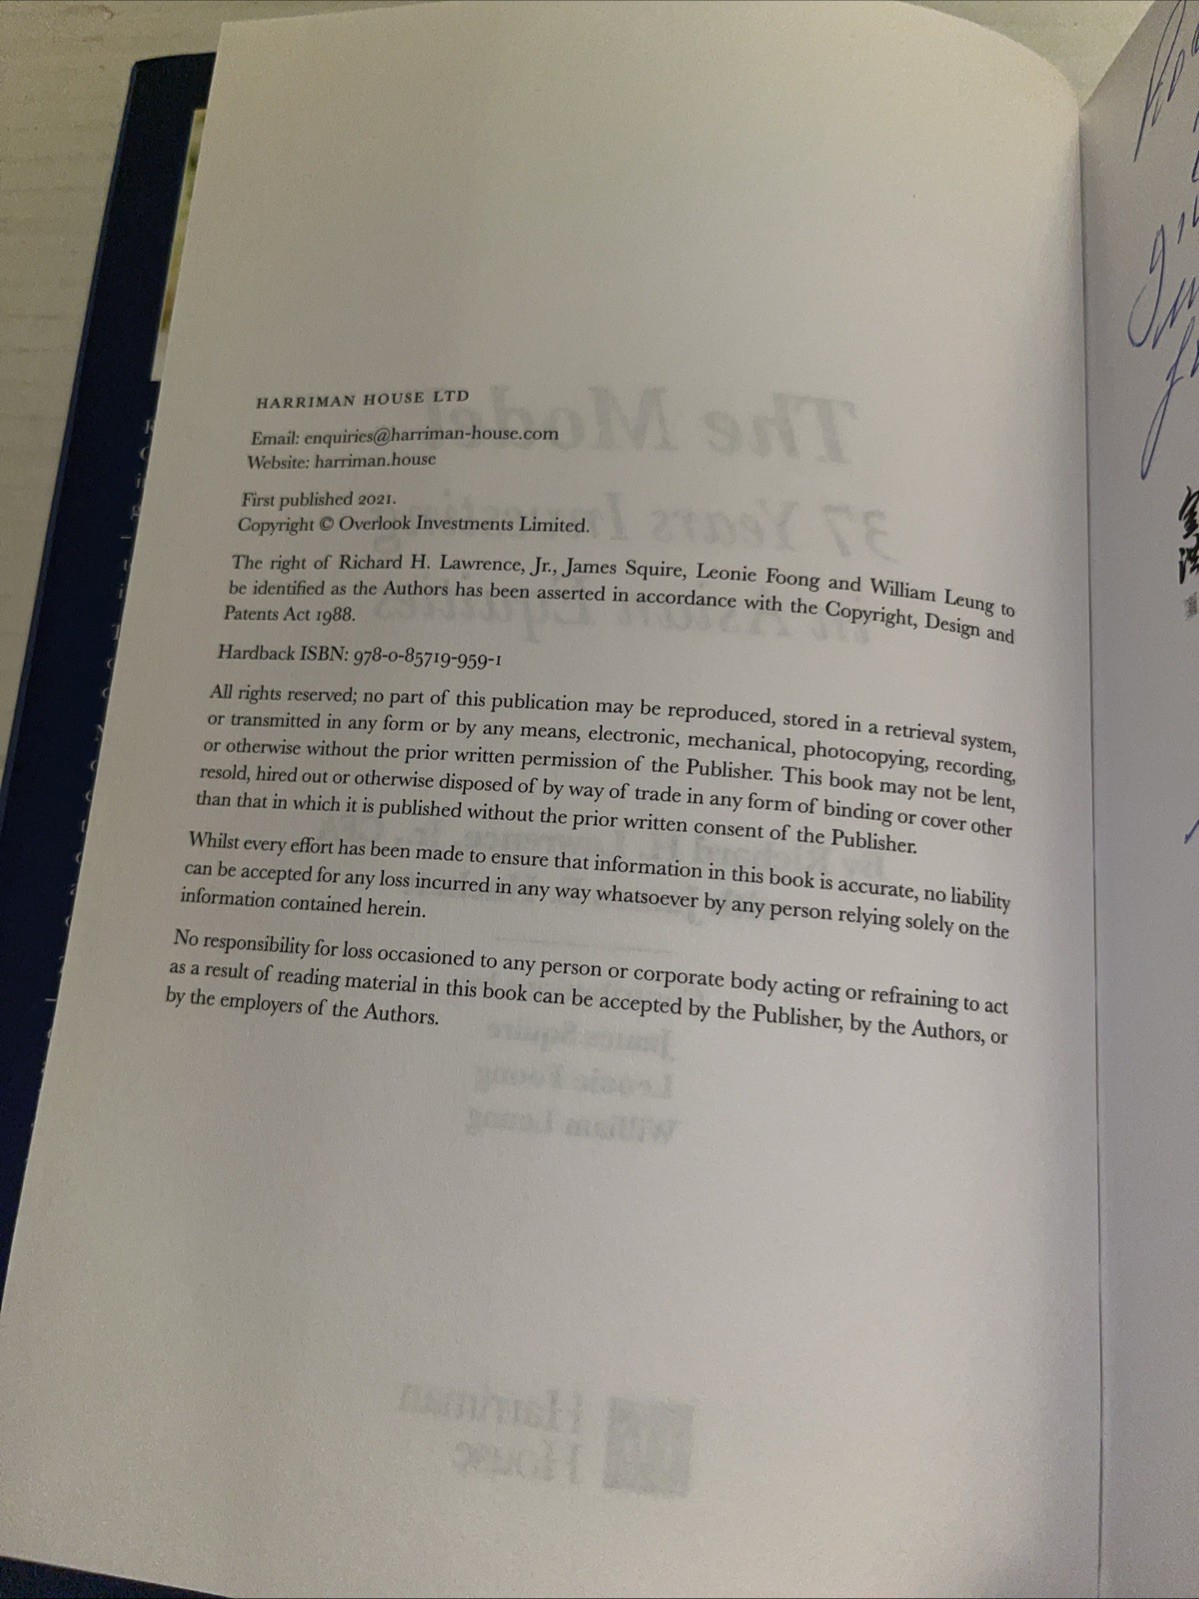 HARRIMAN HOUSE LTD
Email: enquiries@harriman-house.com
Website: harriman.house
First published 2021.
Copyright © Overlook Investments Limited.
The right of Richard H. Lawrence, Jr., James Squire, Leonie Foong and William Leung to
be identified as the Authors has been asserted in accordance with the Copyright, Design and
Patents Act 1988.
Hardback ISBN: 978-0-85719-959-1
All rights reserved; no part of this publication may be reproduced, stored in a retrieval system,
or transmitted in any form or by any means, electronic, mechanical, photocopying, recording,
or otherwise without the prior written permission of the Publisher. This book may not be lent,
resold, hired out or otherwise disposed of by way of trade in any form of binding or cover other
than that in which it is published without the prior written consent of the Publisher.
Whilst every effort has been made to ensure that information in this book is accurate, no liability
can be accepted for any loss incurred in any way whatsoever by any person relying solely on the
information contained herein.
No responsibility for loss occasioned to any person or corporate body acting or refraining to act
as a result of reading material in this book can be accepted by the Publisher, by the Authors, or
by the employers of the Authors.
The Model
37 Years Investing
in Asian Equities
James Squire
Leonie Foong
William Leung
Harriman
House